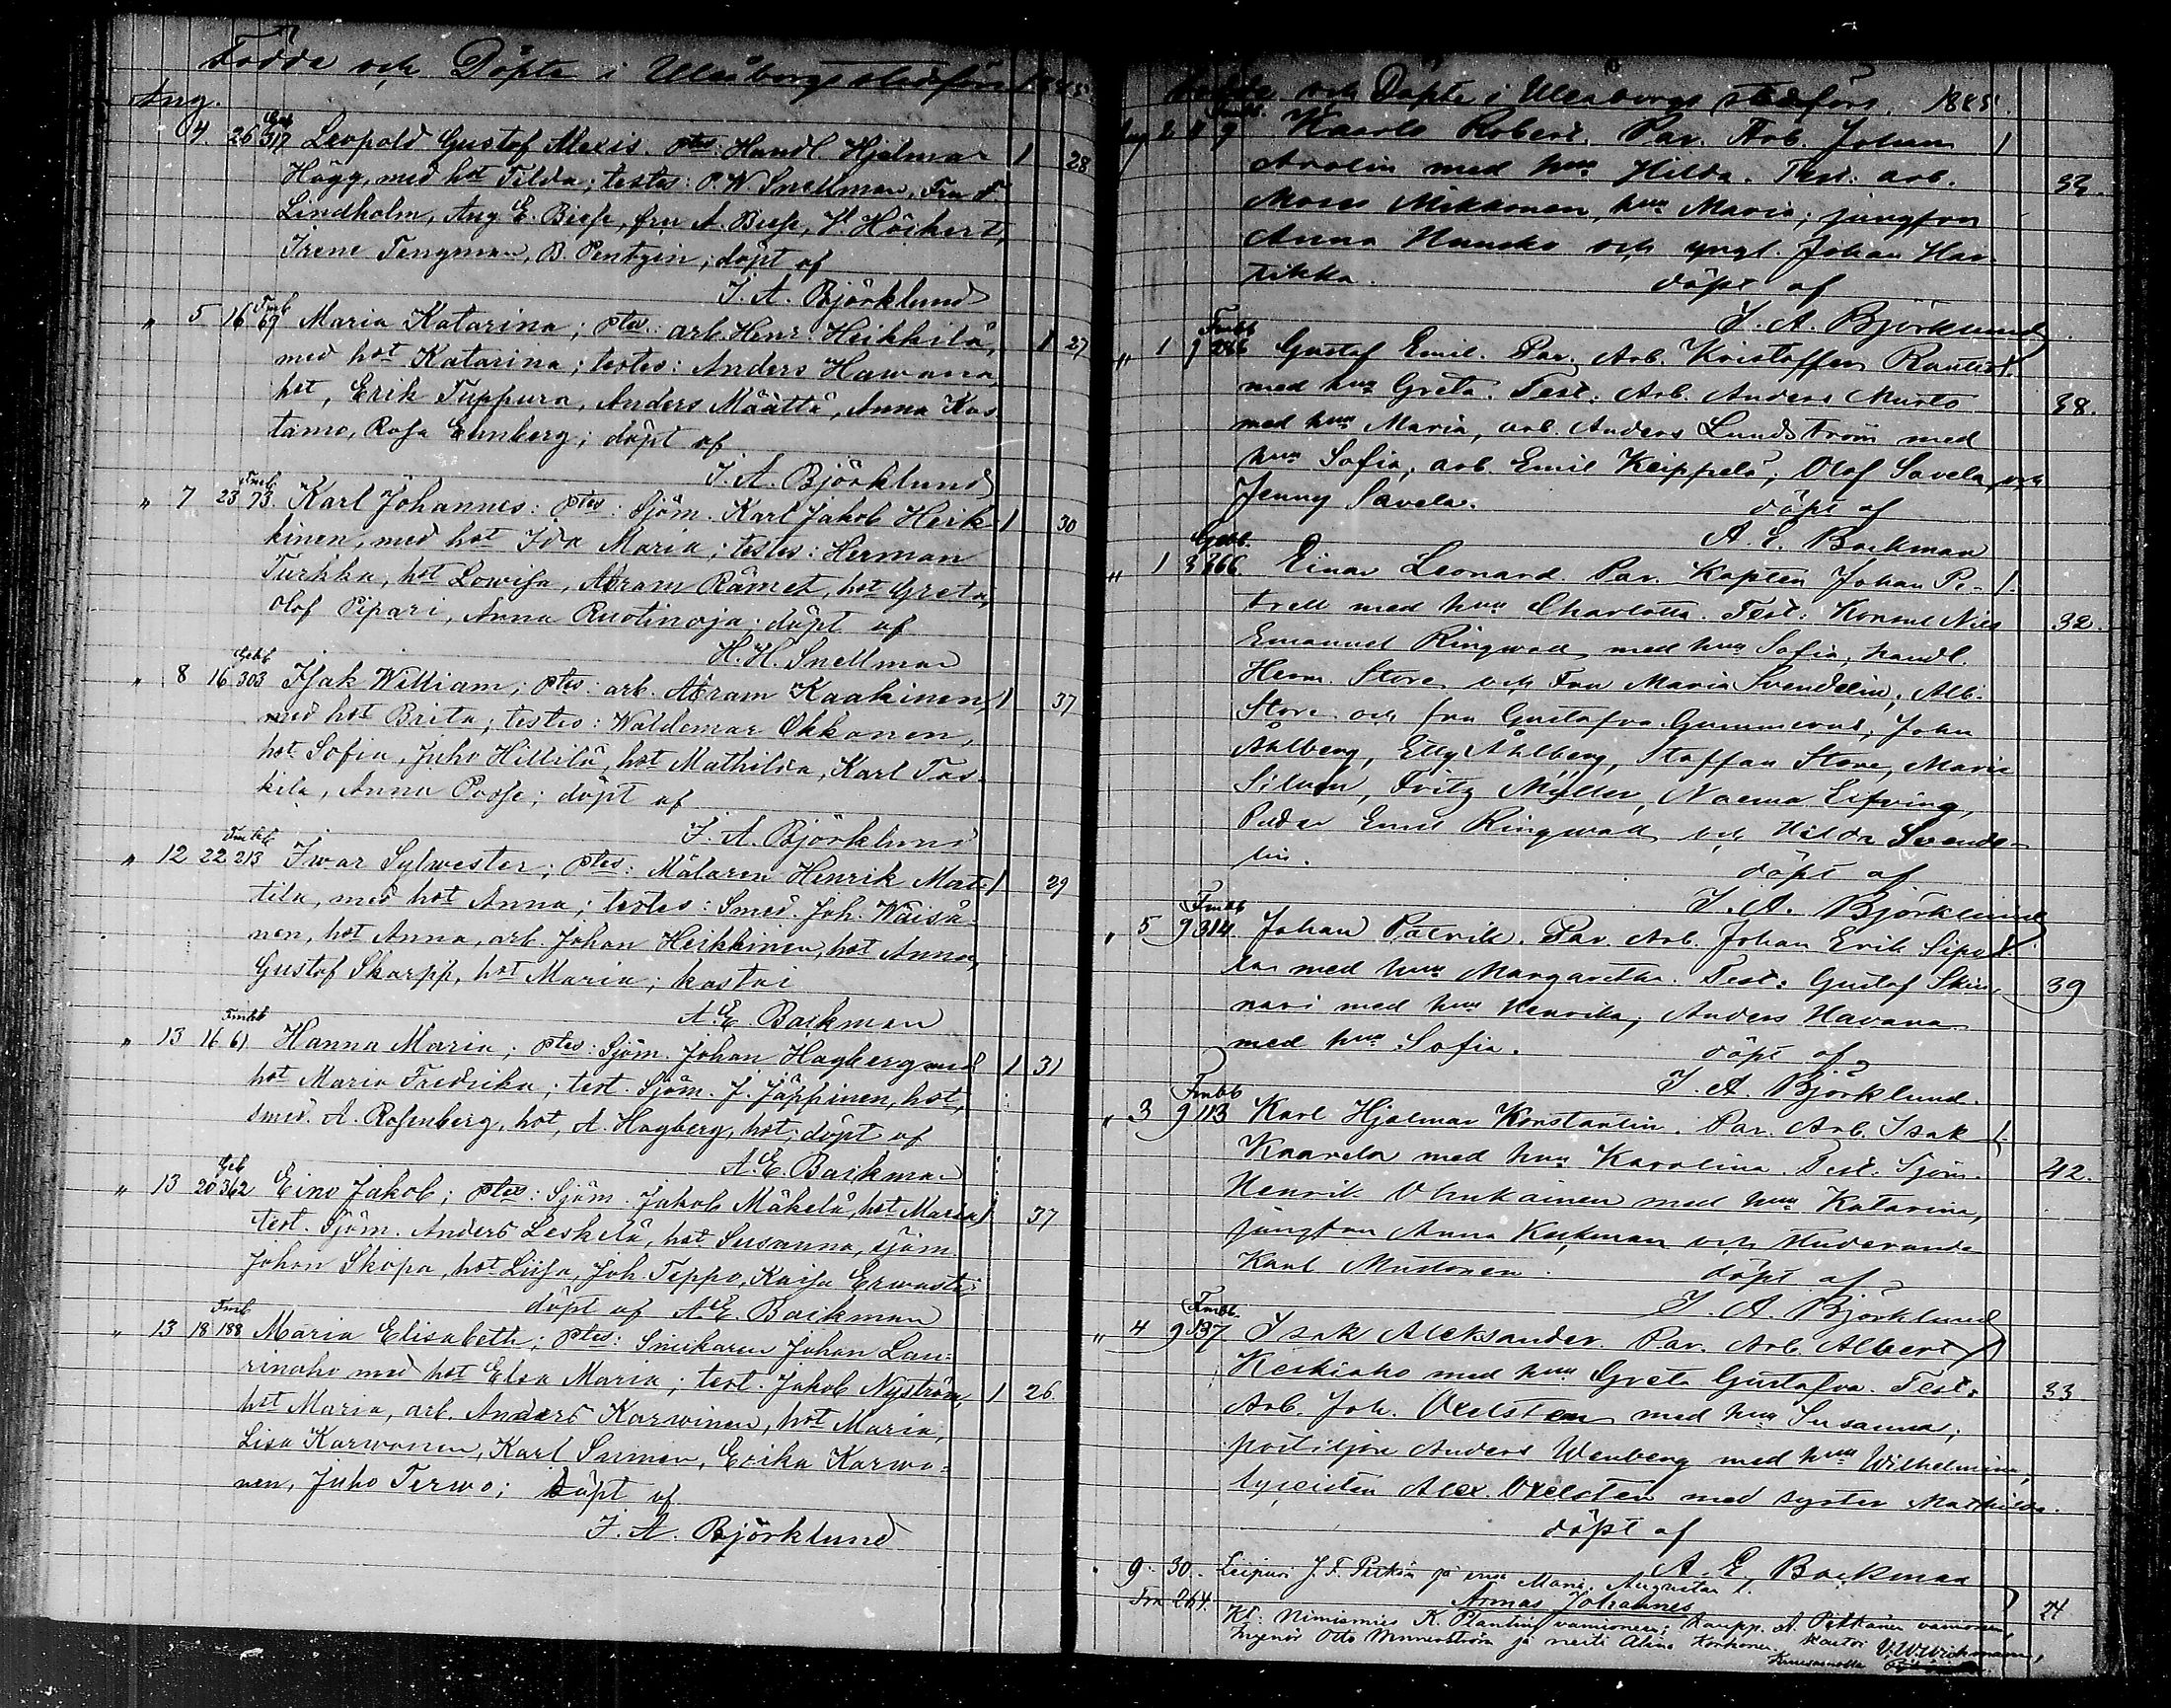 Födde och Döpte i Uleåborgs stadsförs. 1885
Aug.
4. 26 Geb 317 Leopold Gustof Alexis. ptes: Handl. Hjelmar 1 28
Hägg, med hot Tilda; testes: P. W. Snellman, Fru F.
Lindholm, Aug E. Biese, fru A. Biese, V. Höckert,
Irene Tengman, B. Pentzin; döpt af
J. A. Björklund
" 5 16 Fmb 69 Maria Katarina; ptes: arb. Henr. Heikkilä, 1 27
med hot Katarina; testes: Anders Hawana
hot, Erik Tuppura, Anders Määttä, Anna Kos-
tamo, Rosa Ennberg; döpt af
J. A. Björklund
" 7 23 Fmb 73. Karl Johannes: ptes: Sjöm. Karl Jakob Heik- 1 30
kinen, med hot Ida Maria; testes: Herman
Turkka, hot Lowisa, Abram Rämet, hot Greta,
Olof Pipari, Anna Ruotinoja; döpt af
H. H. Snellman
" 8 16 Gebb 303 Isak William; ptes: arb. Abram Kaakinen, 1 37
med hot Brita; testes: Waldemar Okkonen,
hot Sofia, Juho Hillilä, hot Mathilda, Karl Tas-
kila, Anna Posse; döpt af
J. A. Björklund
" 12 22 Fmbb 213 Iwar Sylwester; ptes: Målaren Henrik Mat- 1 29
tila, med hot Anna; testes: Smed. Joh. Wäisä-
nen, hot Anna, arb. Johan Heikkinen, hot Anna,
Gustof Skarpp, hot Maria; kastoi
A. E. Backman
" 13 16 Fmbb 61 Hanna Maria; ptes: Sjöm. Johan Hagberg med 1 31
hot Maria Fredrika; test. Sjöm. J. Jäppinen, hot,
smed. A. Rosenberg, hot, A. Hagberg, hot; döpt af
A. E. Backman
" 13 20 Geb 362 Eino Jakob; ptes: Sjöm. Jakob Mäkelä, hot Maria; 1 37
test. Sjöm. Anders Leskelä, hot Susanna, sjöm.
Johan Skopa, hot Liisa, Joh. Teppo, Kaisa Erwasti;
döpt af A. E. Backman
" 13 18 Fmb 188 Maria Elisabeth; ptes: Snickaren Johan Lau-
rinaho med hot Elsa Maria; test. Jakob Nyström, 1 26.
hot Maria, arb. Anders Karwinen, hot Maria,
Lisa Karwonen, Karl Snimen, Erika Karwo-
nen, Juho Terwo; döpt af
J. A. Björklund
Födde och Döpte i Uleåborgs stadsförs. 1885.
Aug 2 Fmbb. 9 Kaarlo Robert. Par. Arb. Johan 1
Arolin med hu Hilda. Test: arb. 33.
Moses Mikkonen, hu Maria; jungfru
Anna Hanska och yngl. Johan Har-
tikka. döpt af
J. A. Björklund.
" 1 9 Fmbb 286 Gustaf Emil. Par. Arb. Kristoffer Rautio 1.
med hu Greta. Test. Arb. Anders Murto 38.
med hu Maria, arb. Anders Lundström med
hu Sofia, arb. Emil Keippelä, Olof Savela, och
Jenny Savela. döpt af
A. E. Backman
" 1 3 Gebb. 366 Einar Leonard. Par. Kapten Johan Pe- 1.
trell med hu Charlotta. Test: Konsul Nils 32.
Emanuel Ringwall med hu Sofia, handl.
Herm. Store och Fru Maria Svendelin, Alb.
Store och fru Gustafva Gummerus, John
Åhlberg, Elly Åhlberg, Staffan Store, Maria
Silvén, Fritz Müller, Naema Elfving,
Peder Emil Ringwall och Hilda Svende-
lin. döpt af
J. A. Björklund
" 5 9 Fmbb 314 Johan Patrik. Par. Arb. Johan Erik Sipo- 1.
la med hu Margaretha. Test: Gustaf Skin- 39
nari med hu Henrika, Anders Havana
med hu Sofia. döpt af
J. A. Björklund.
" 3 9 Fmbb 113 Karl Hjalmar Konstantin. Par. Arb. Isak 1.
Kaarela med hu Karolina. Test. Sjöm. 42.
Henrik Ohukainen med hu Katarina,
jungfru Anna Keckman och studerande
Karl Mustonen. döpt af
J. A. Björklund
" 4 9 Fmbb 137 Isak Aleksander. Par. Arb. Albert 1
Keskiaho med hu Greta Gustafva. Test: 33
Arb. Joh. Oxelsten med hu Susanna,
postiljon Anders Wenberg med hu Wilhelmina,
typisten Alex. Oxelsten med syster Mathilda.
döpt af
A. E. Backman
" 9. 30. Leipuri J. F. Petkän ja vmo Maria Augustan l.
Fm 264. Armas Johannes 1 24
Kt: Nimismies K. Planting vaimoneen; Kaupp. A. Pitkänen vaimoneen
Ingenör Otto Wennerström ja neiti Alina Korhonen. Kastoi V. W. Wichmann,